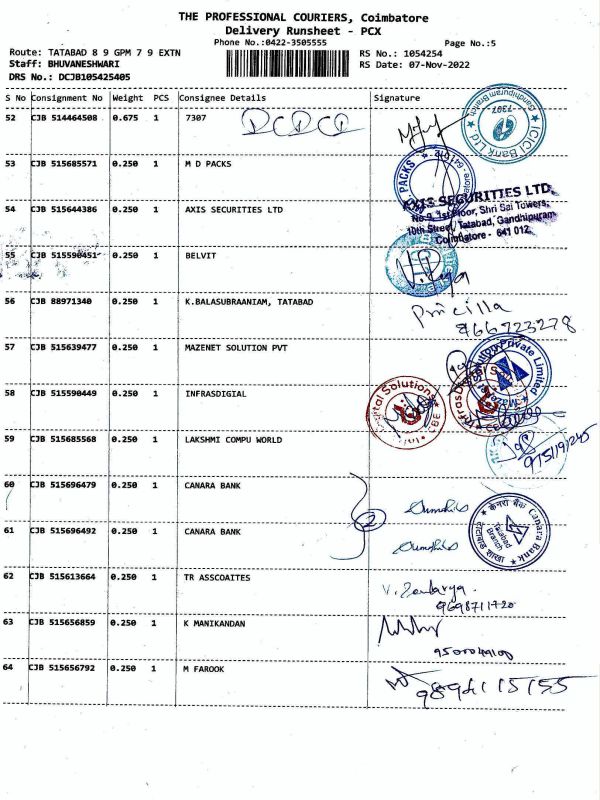 THE PROFESSIONAL COURIERS, Coimbatore
Delivery Runsheet - PCX
Phone No.:0422-3505555
Page No.:5
Route: TATABAD 8 9 GPM 7 9 EXTN
RS No.: 1054254
Staff: BHUVANESHWARI
RS Date: 07-Nov-2022
DRS No.: DCJB105425405
S No Consignment No Weight PCS Consignee Details Signature
52 CJB 514464508 0.675 1 7307
ICICI Bank Ltd
Gandhipuram Branch
53 CJB 515685571 0.250 1 M D PACKS
PACKS
54 CJB 515644386 0.250 1 AXIS SECURITIES LTD
AXIS SECURITIES LTD
No 9, 1st Floor, Shri Sai Towers,
10th Street, Tatabad, Gandhipuram
Coimbatore - 641 012.
55 CJB 515590451 0.250 1 BELVIT
56 CJB 88971340 0.250 1 K.BALASUBRAANIAM, TATABAD
Priscilla
9566723278
57 CJB 515639477 0.250 1 MAZENET SOLUTION PVT
Solution Private Limited
58 CJB 515590449 0.250 1 INFRASDIGIAL
59 CJB 515685568 0.250 1 LAKSHMI COMPU WORLD
9751191245
60 CJB 515696479 0.250 1 CANARA BANK
2
61 CJB 515696492 0.250 1 CANARA BANK
केनरा बैंक Canara Bank
Tatabad
Branch
62 CJB 515613664 0.250 1 TR ASSCOAITES
9698711720
63 CJB 515656859 0.250 1 K MANIKANDAN
64 CJB 515656792 0.250 1 M FAROOK
9894115155